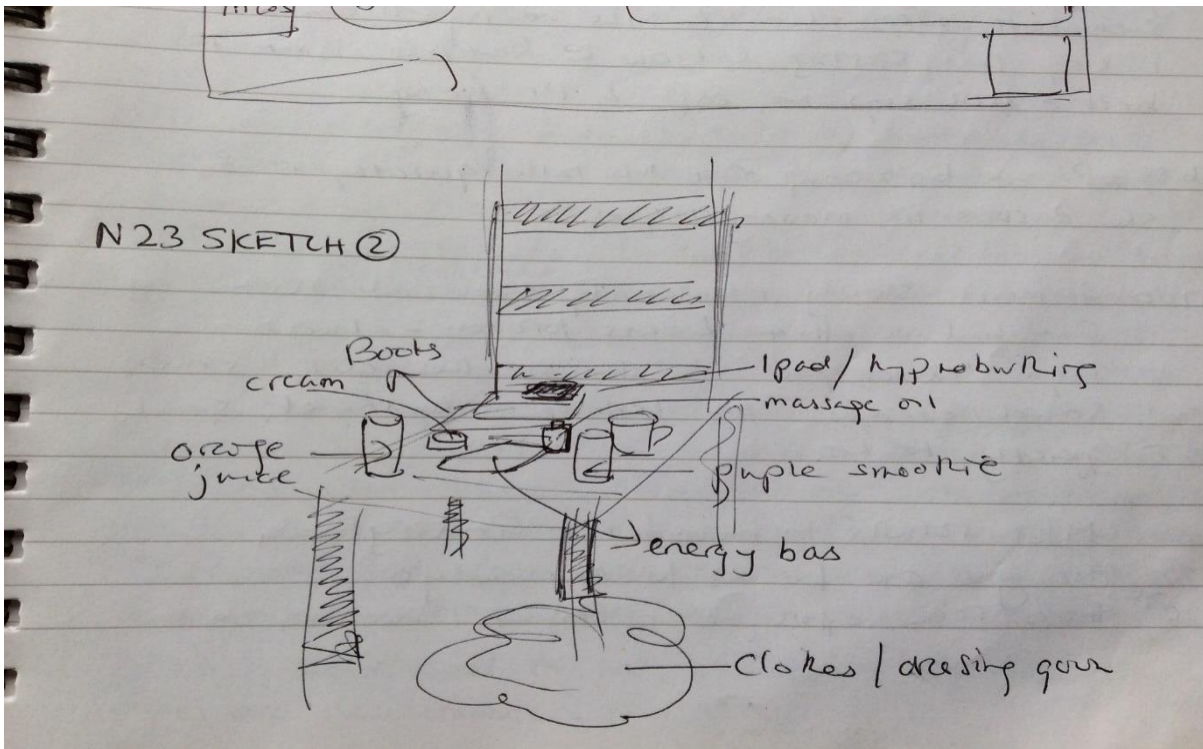 N23 SKETCH ②
Books
cream
Ipad / hypnobirthing
massage oil
orange
juice
puple smoothie
energy bas
Clothes / dressing gown